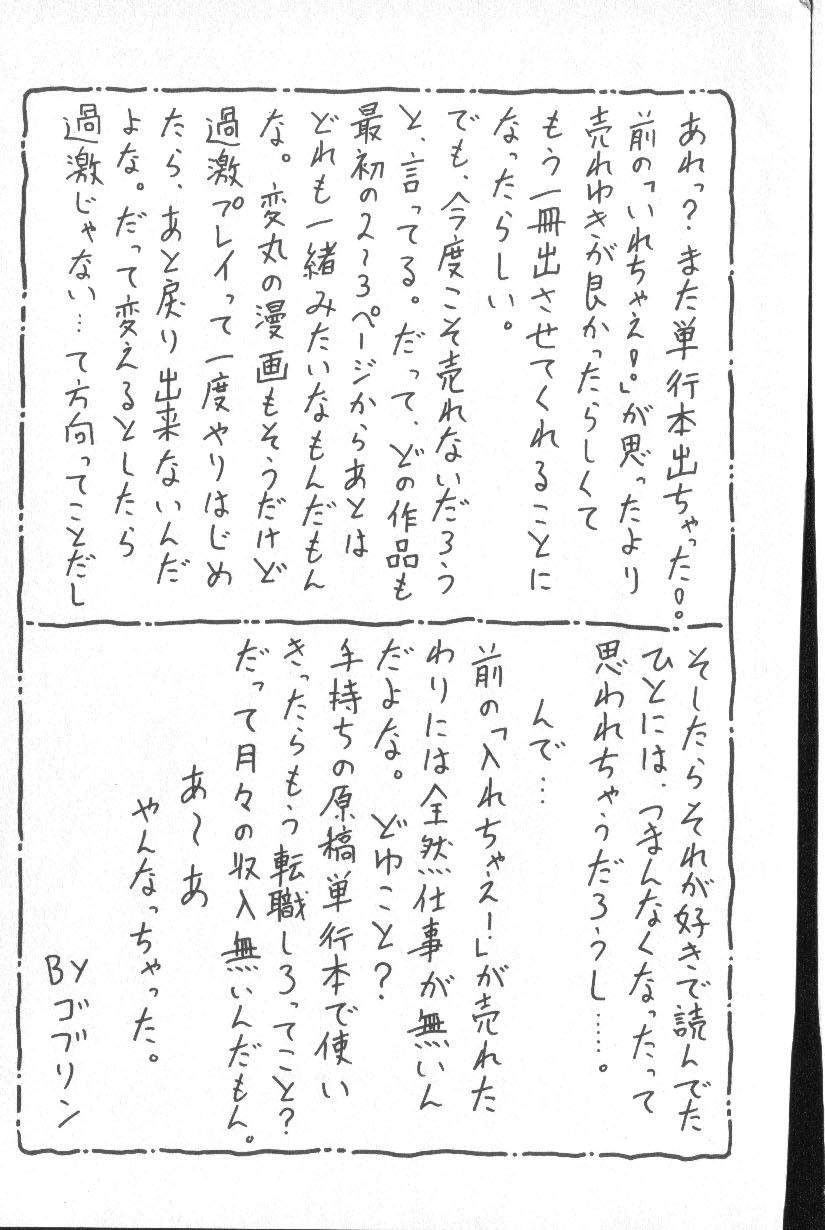 あれっ？また単行本出ちゃった！。
前の「いれちゃえ！。」が思ったより
売れゆきが良かったらしくて
もう一冊出させてくれることに
なったらしい。
でも、今度こそ売れないだろう
と、言ってる。だって、どの作品も
最初の2〜3ページからあとは
どれも一緒みたいなもんだもん
な。変丸の漫画もそうだけど
過激プレイって一度やりはじめ
たら、あと戻り出来ないんだ
よな。だって変えるとしたら
過激じゃない…て方向ってことだし
そしたらそれが好きで読んでた
ひとには、つまんなくなったって
思われちゃうだろうし……。
んで…
前の「入れちゃえ！」が売れた
わりには全然仕事が無いん
だよな。どゆこと？
手持ちの原稿単行本で使い
きったらもう転職しろってこと？
だって月々の収入無いんだもん。
あ〜あ
やんなっちゃった。
BYゴブリン